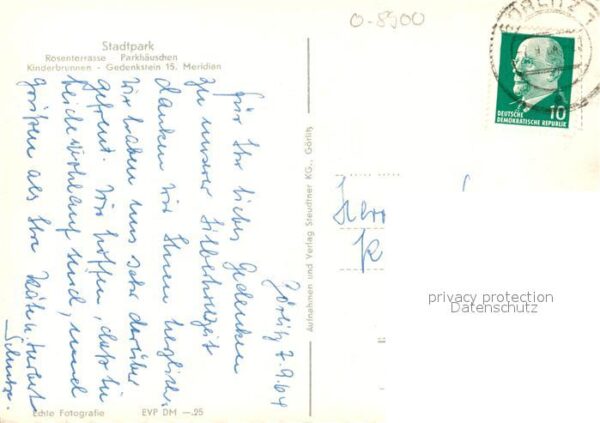 Stadtpark
Rosenterrasse - Parkhäuschen
Kinderbrunnen - Gedenkstein 15. Meridian
Görlitz 7.9.64
Für Ihr liebes Gedenken
zu unserer Silberhochzeit
danken wir Ihnen herzlichst.
Wir haben uns sehr darüber
gefreut. Wir hoffen, daß Sie
beide wohlauf sind, und
grüßen als Ihre
Echte Fotografie EVP DM —.25
Aufnahmen und Verlag Steudtner KG., Görlitz
O-8900
GÖRLITZ 1
DEUTSCHE
DEMOKRATISCHE REPUBLIK
10
Herr
K
privacy protection
Datenschutz